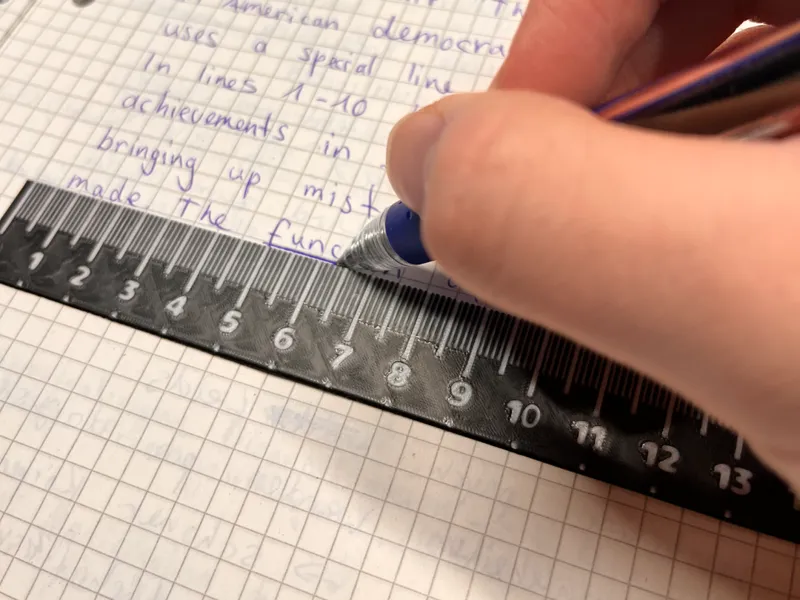 Th
American democra
uses a special line
In lines 1-10
achievements in
bringing up mist
made the func
1 2 3 4 5 6 7 8 9 10 11 12 13